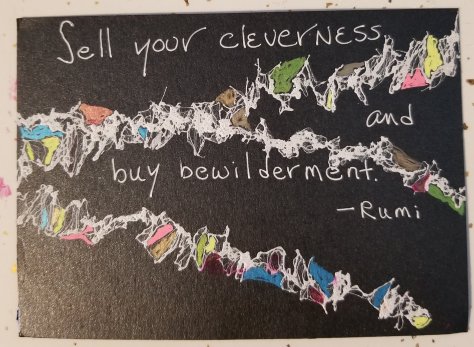 Sell your cleverness
and
buy bewilderment.
-Rumi